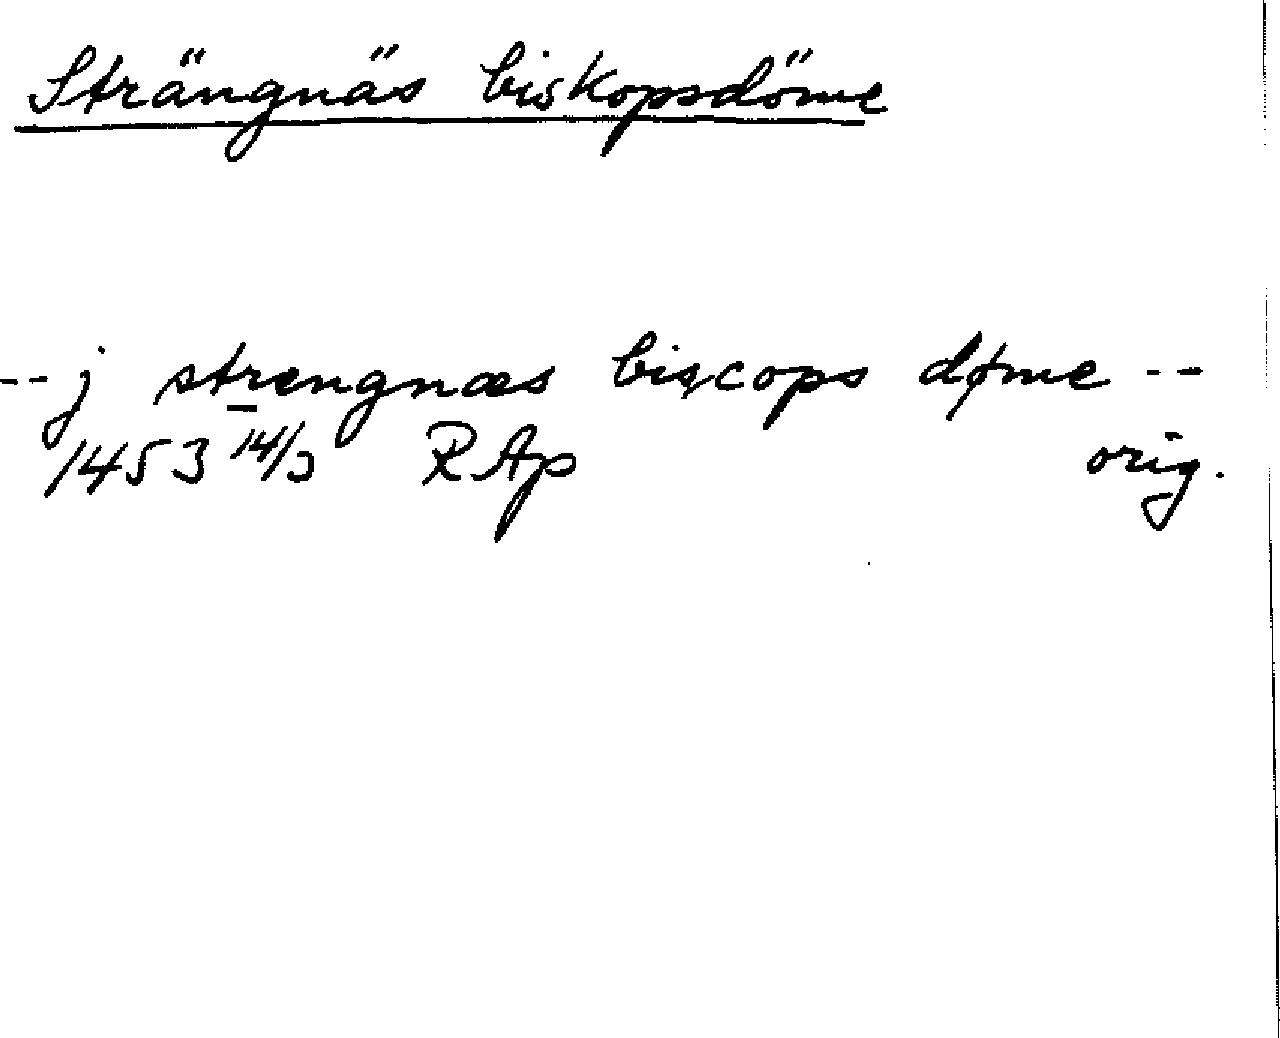 Strängnäs biskopsdöme
-- j strengnæs biscops døme --
1453 14/3 RAp orig.